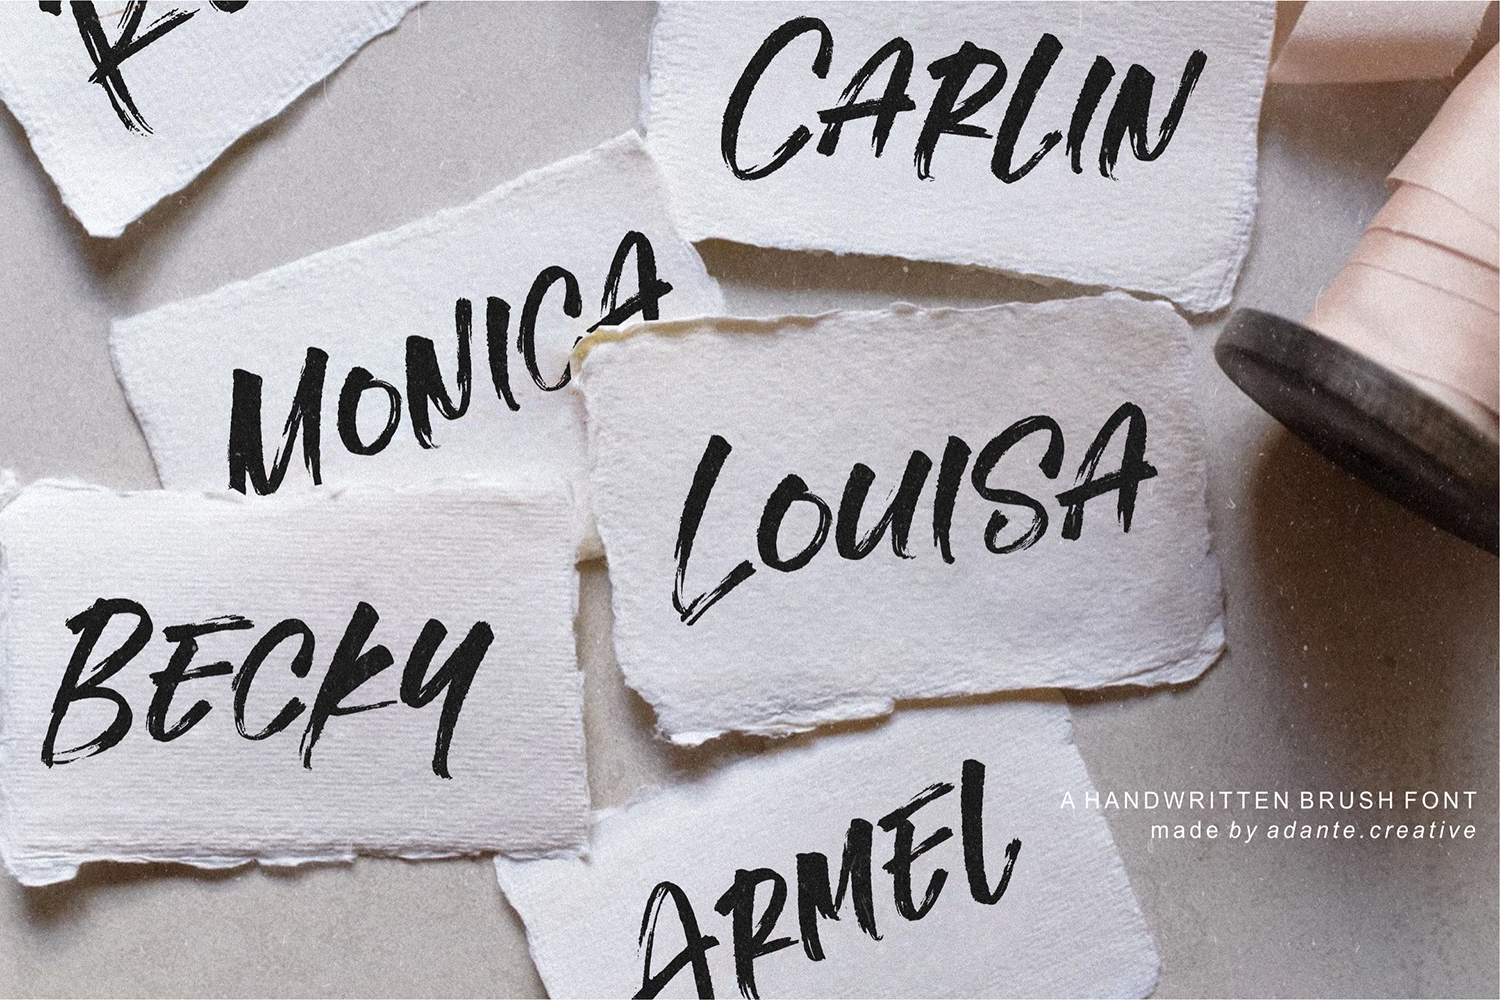 CARLIN
MONICA
LOUISA
BECKY
ARMEL
A HANDWRITTEN BRUSH FONT
made by adante.creative